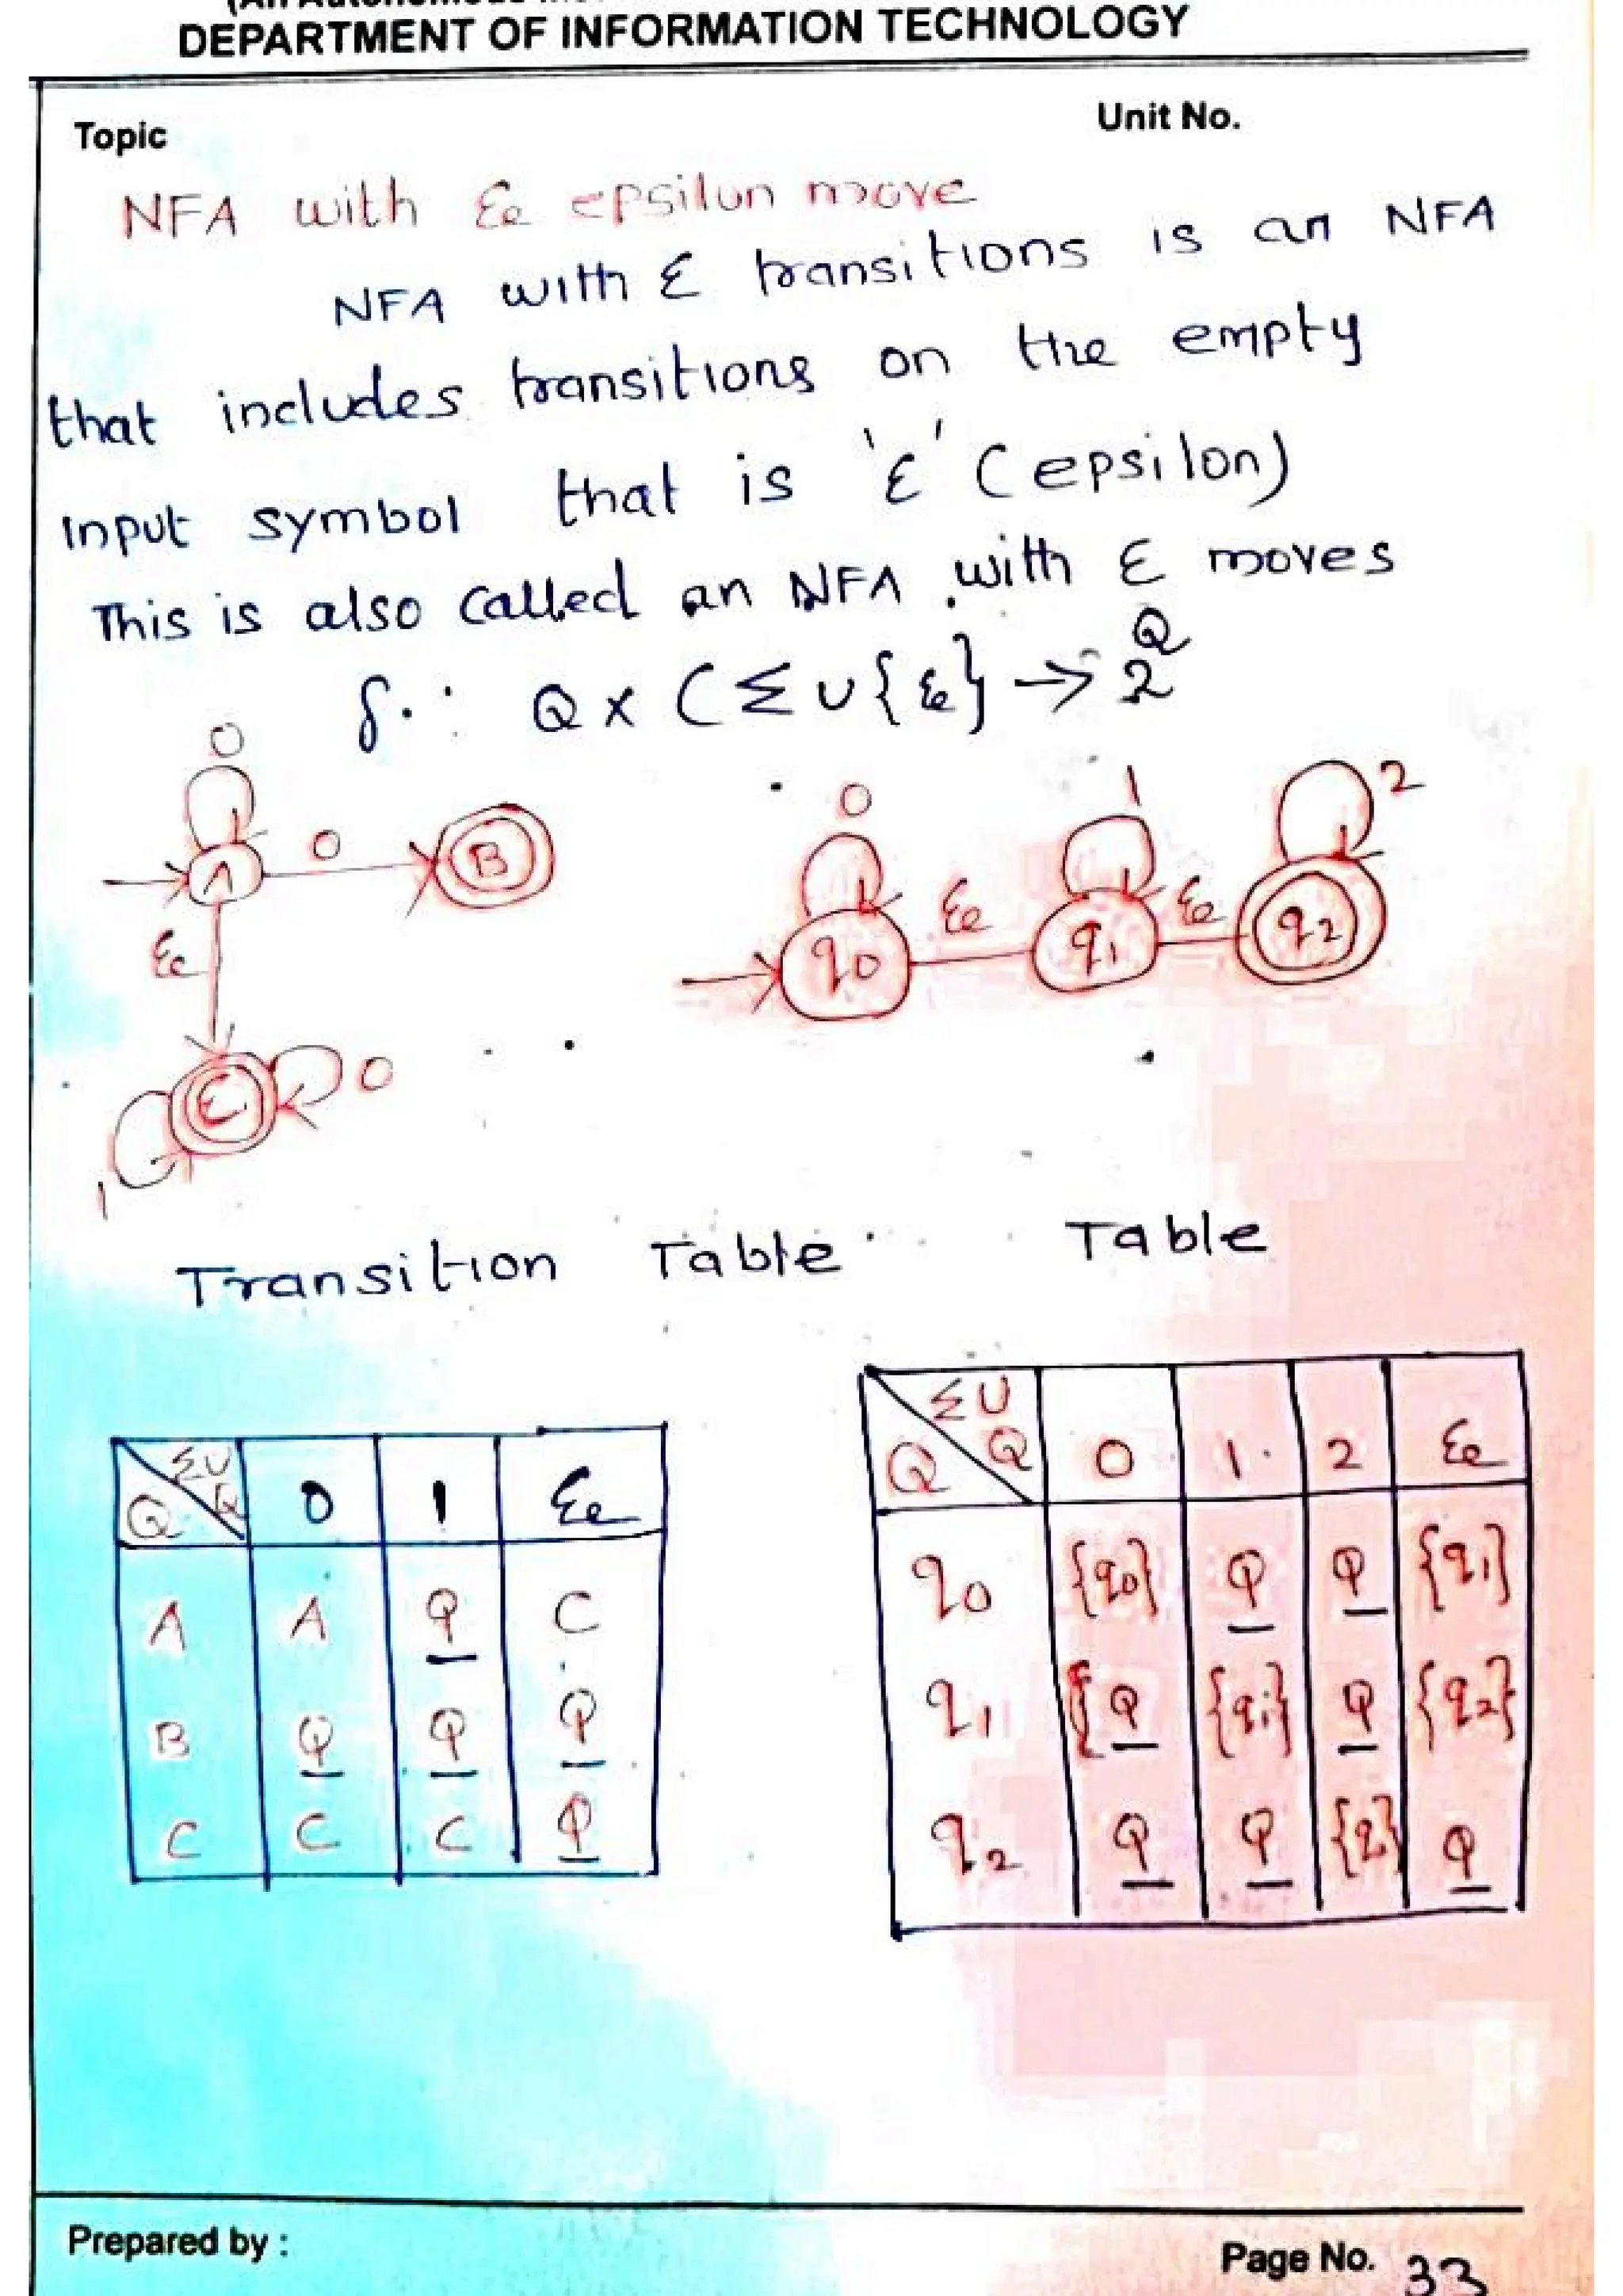 DEPARTMENT OF INFORMATION TECHNOLOGY
Topic
Unit No.
NFA with Ɛ epsilon move
NFA with Ɛ transitions is an NFA
that includes transitions on the empty
Input symbol that is 'Ɛ' (epsilon)
This is also called an NFA with Ɛ moves
δ: Q x (Σ ∪ {Ɛ} → 2^Q
0
0
A
B
Ɛ
C
0
1
0
1
2
q0
Ɛ
q1
Ɛ
q2
Transition Table
Table
ΣU
Q Q 0 1 Ɛ
A A φ C
B φ φ φ
C C C φ
ΣU
Q Q 0 1 2 Ɛ
q0 {q0} φ φ {q1}
q1 { φ {q1} φ {q2}
q2 φ φ {2} φ
Prepared by :
Page No. 33